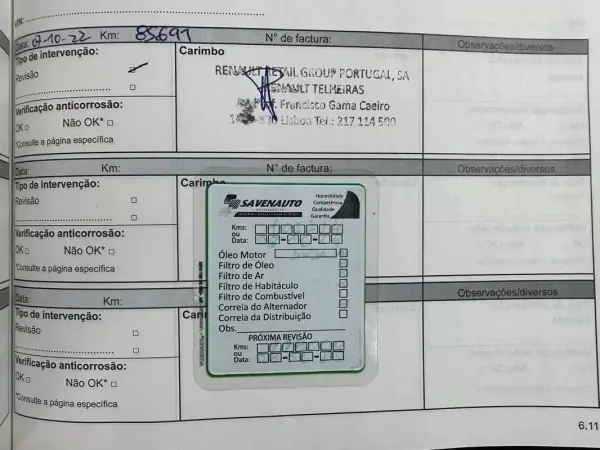 VIN:
Data: 07-10-22 Km: 85691 Nº de factura: Observações/diversos
Tipo de intervenção: Carimbo
Revisão
RENAULT RETAIL GROUP PORTUGAL, SA
RENAULT TELHEIRAS
Francisco Gama Caeiro
Lisboa Tel.: 217 114 500
Verificação anticorrosão:
OK Não OK*
*Consulte a página específica
Data: Km: Nº de factura: Observações/diversos
Tipo de intervenção:
Revisão
Verificação anticorrosão:
OK Não OK*
*Consulte a página específica
SAVENAUTO
Honestidade
Competência
Qualidade
Garantia
Kms:
ou
Data:
Óleo Motor
Filtro de Óleo
Filtro de Ar
Filtro de Habitáculo
Filtro de Combustível
Correia do Alternador
Correia da Distribuição
Obs.
PRÓXIMA REVISÃO
Kms:
ou
Data:
Data: Km: Observações/diversos
Tipo de intervenção:
Revisão
Verificação anticorrosão:
OK Não OK*
*Consulte a página específica
6.11